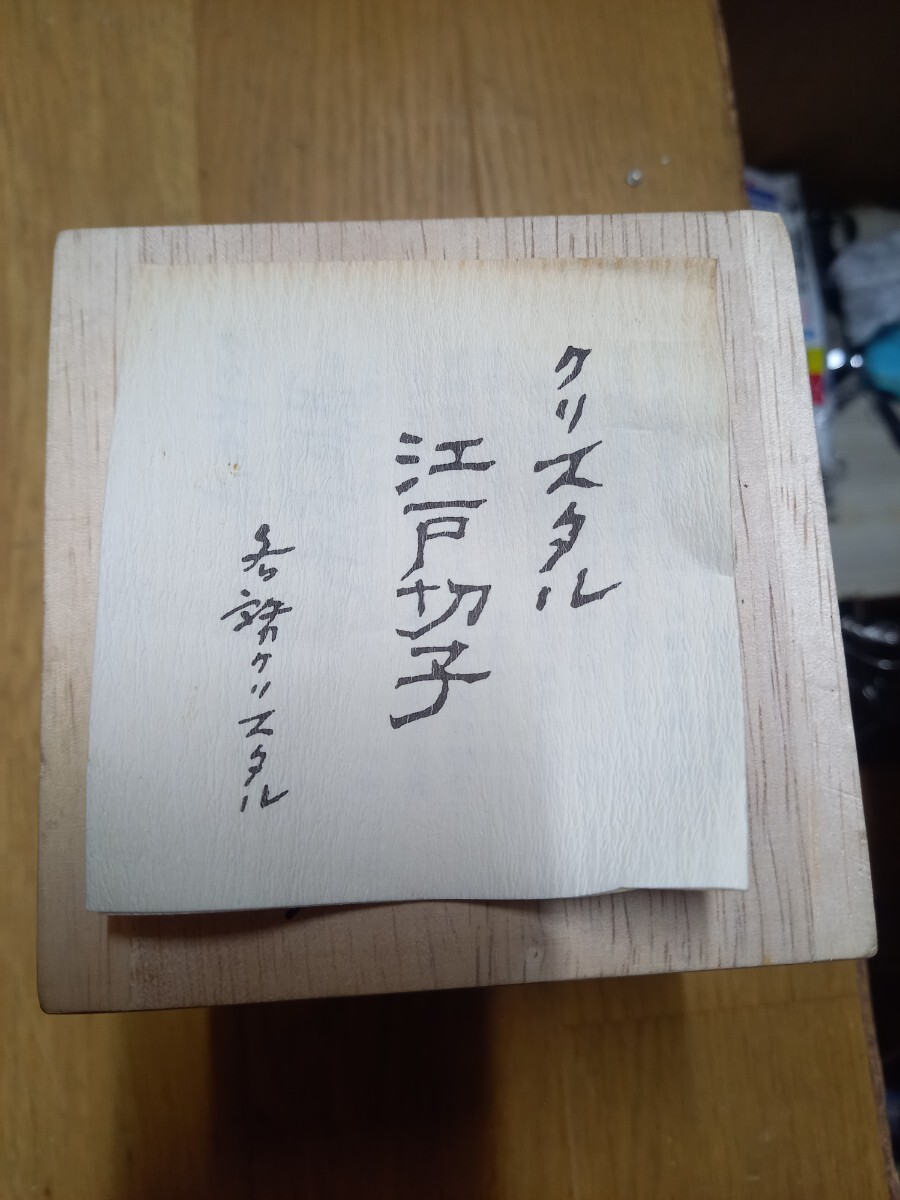 クリスタル
江戸切子
各務クリスタル